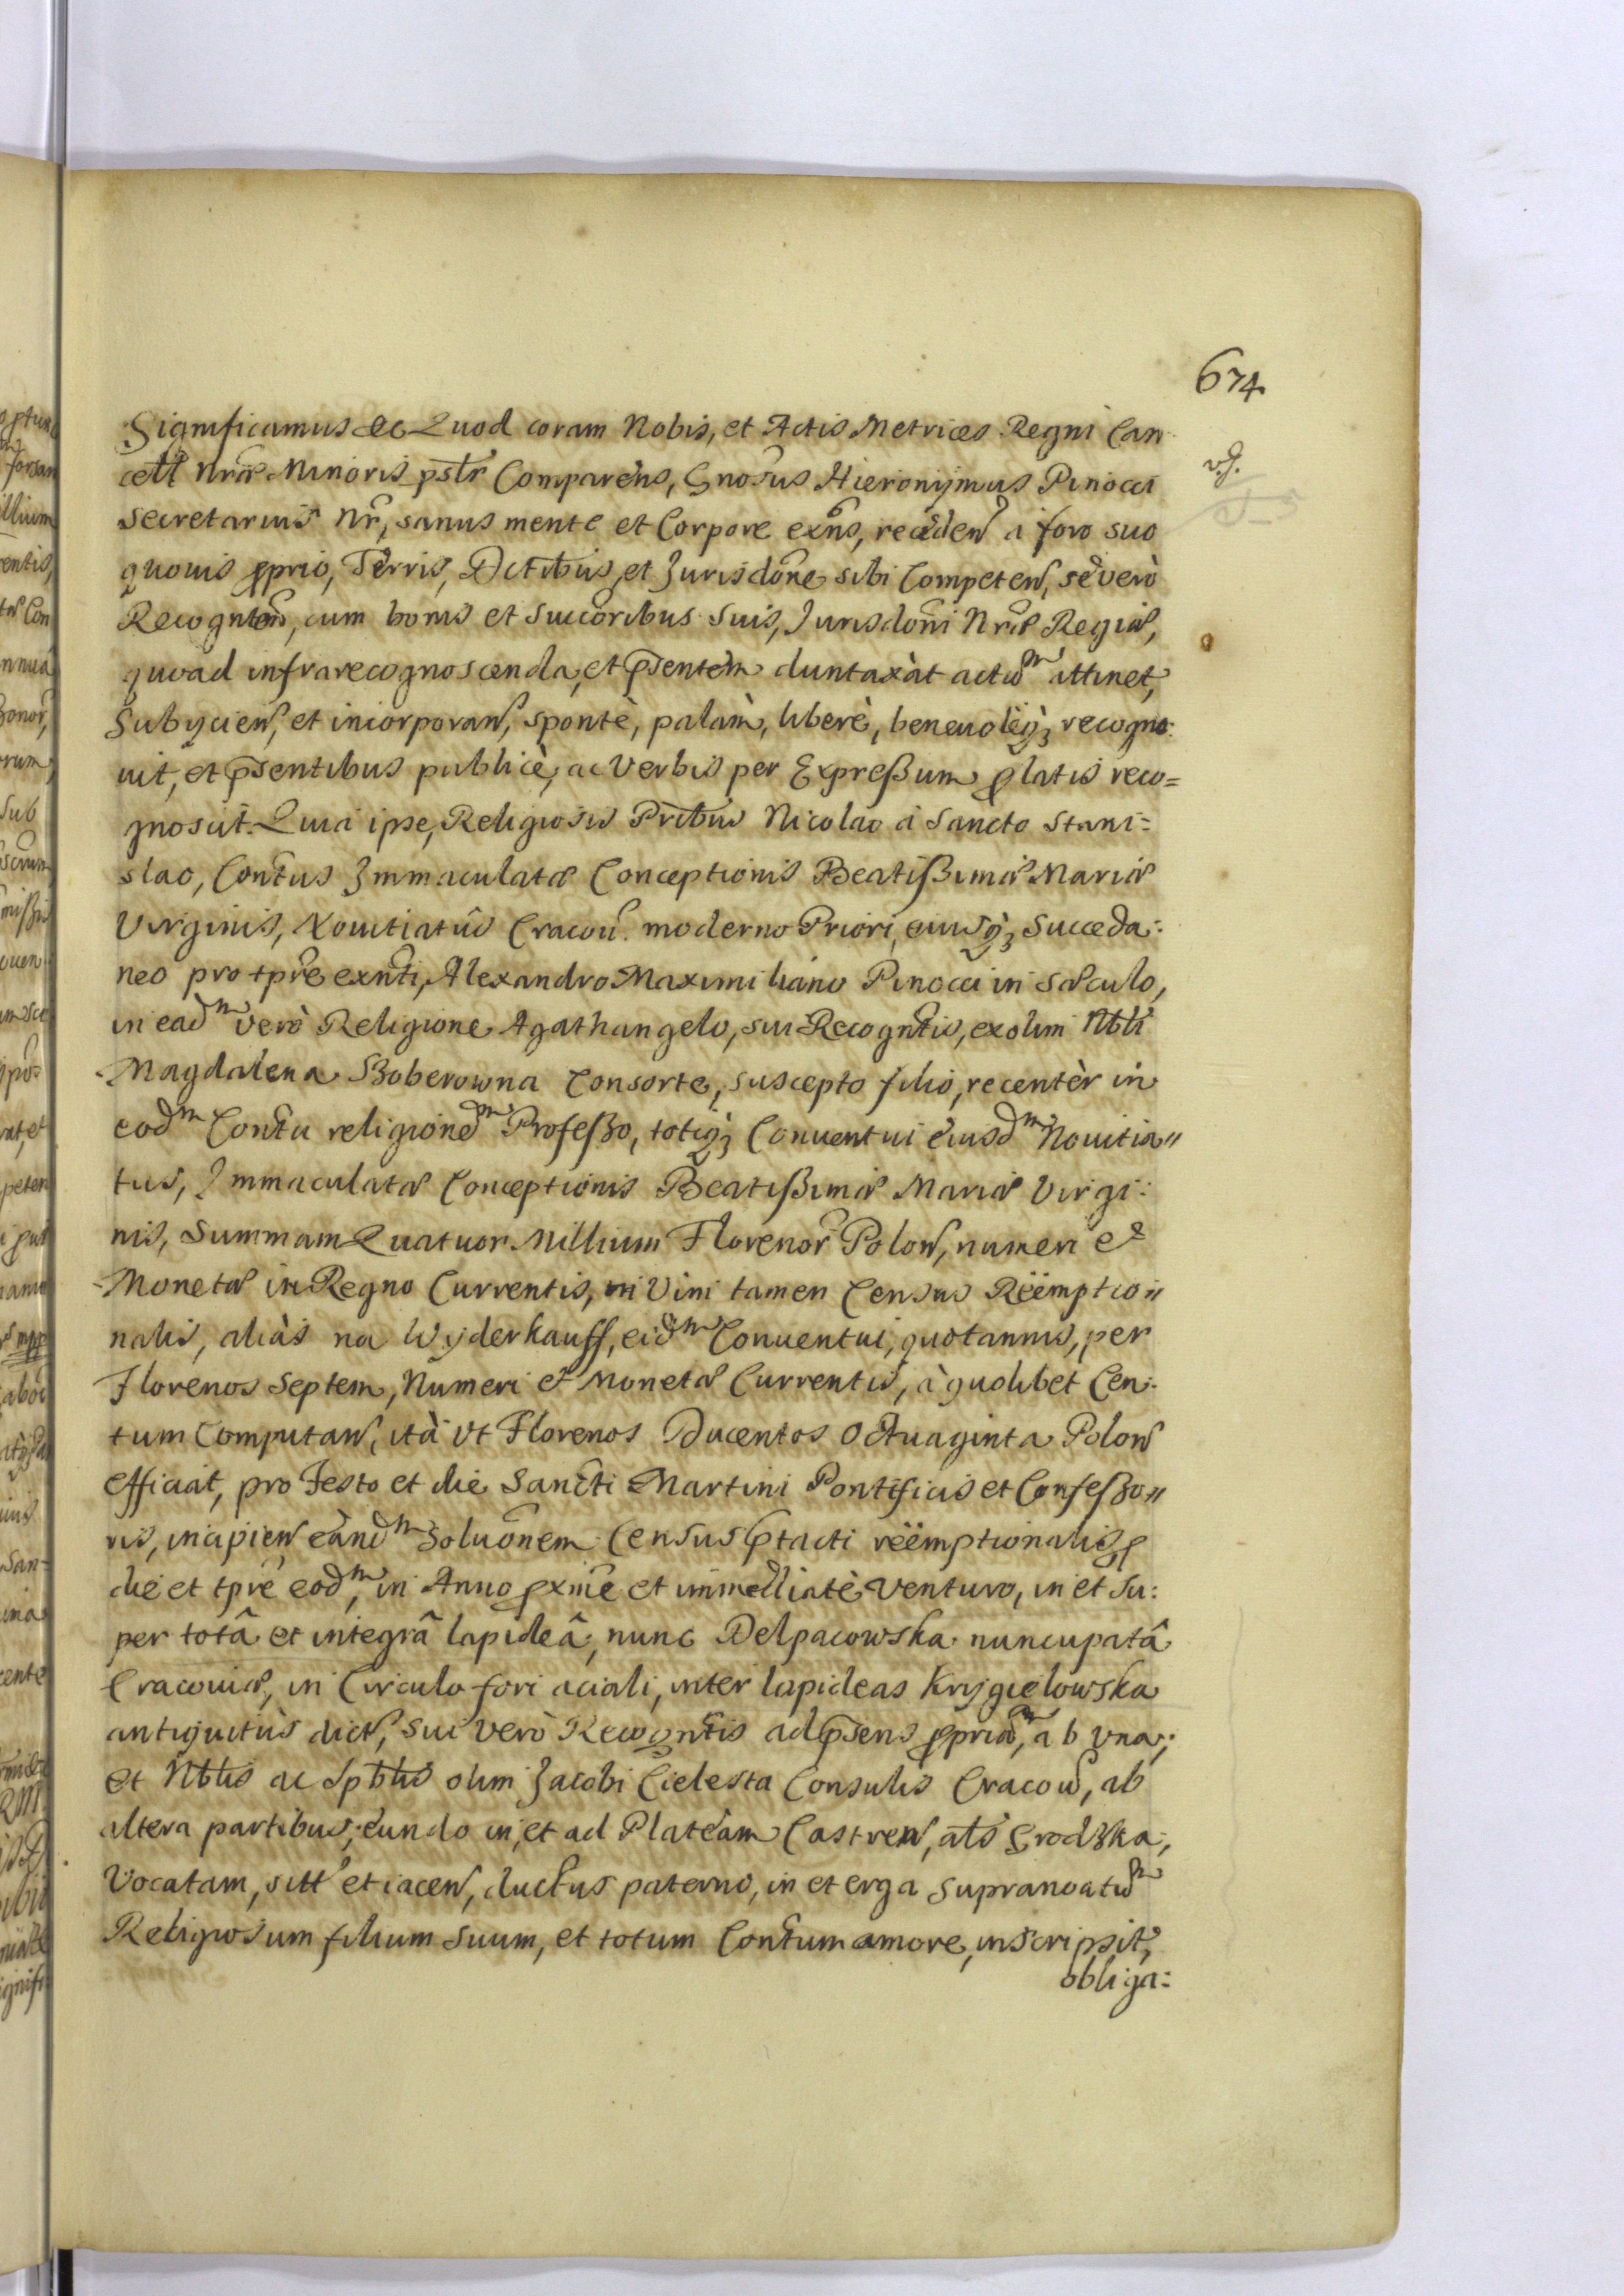 674
Significamus &c Quod coram Nobis, et Actis Metrices Regni Can
cell Nræ Minoris pstr Comparens, Gnosus Hieronijmus Pinocci
v. g.
Secretarius Nr, sanus mente et Corpore exns, receden à foro suo
quouis pprio, Terris, Dctibus, et Jurisdone sibi Competen, se verò
Recognten, cum bonis et succoribus suis, Jurisdoni Nræ Regiæ,
quoad infrarecognoscenda, et psentem duntaxàt actum attinet,
Subijcien, et incorporan, spontè, palàm, liberè, beneuolèq3 recogno:
uit, et psentibus publicè, ac Verbis per Expreßum platis reco=
gnoscit. Quia ipse, Religiosis Pribus Nicolao à Sancto Stani=
slao, Contus Immaculatæ Conceptionis Beatißimæ Mariæ
Virginis, Nouitiatûs Cracou. moderno Priori, eiusq3 Succeda:
neo pro tpre exnti, Alexandro Maximiliano Pinocci in sæculo,
in eadm verò Religione Agathangelo, sui Recogntis, ex olim Nbli
Magdalena Boberowna Consorte, suscepto filio, recentèr in
eodm Contu religionedm Profeßo, totiq3 Conuentui eiusdm Nouitia"
tus, Immaculatæ Conceptionis Beatißimæ Mariæ Virgi:
nis, Summam Quatuor Millium Florenor Polon, numeri et
Monetæ in Regno Currentis, in Vim tamen Census Rëemptio"
nalis, aliàs na Wyderkauff, eidm Conuentui, quotannis, per
Florenos Septem, Numeri et Monetæ Currentis, à quolibet Cen:
tum Computan, ità Vt Florenos Ducentos Octuaginta Polon
efficiat, pro Festo et die Sancti Martini Pontificis et Confeßo"
ris, incipien eandm Soluonem Census ptacti rëemptionalis, p
die et tpre eodm, in Anno pxime et immediatè Venturo, in et Su:
per totâ et integrâ lapideâ, nunc Delpacowska nuncupatâ
Cracouiæ, in Circulo fori aciali, inter lapideas Krygielowska
antiquitùs dict, sui verò Recogntis ad psens ppriam, ab vna;
et Nblis ac Spblis olim Jacobi Cielesta Consulis Cracou, ab
altera partibus, eundo in, et ad Plateàm Castren, als Grodzka,
Vocatam, sitt et iacen, ductus paterno, in et erga supranoatum
Religiosum filium suum, et totum Contum amore, inscripsit,
obliga: